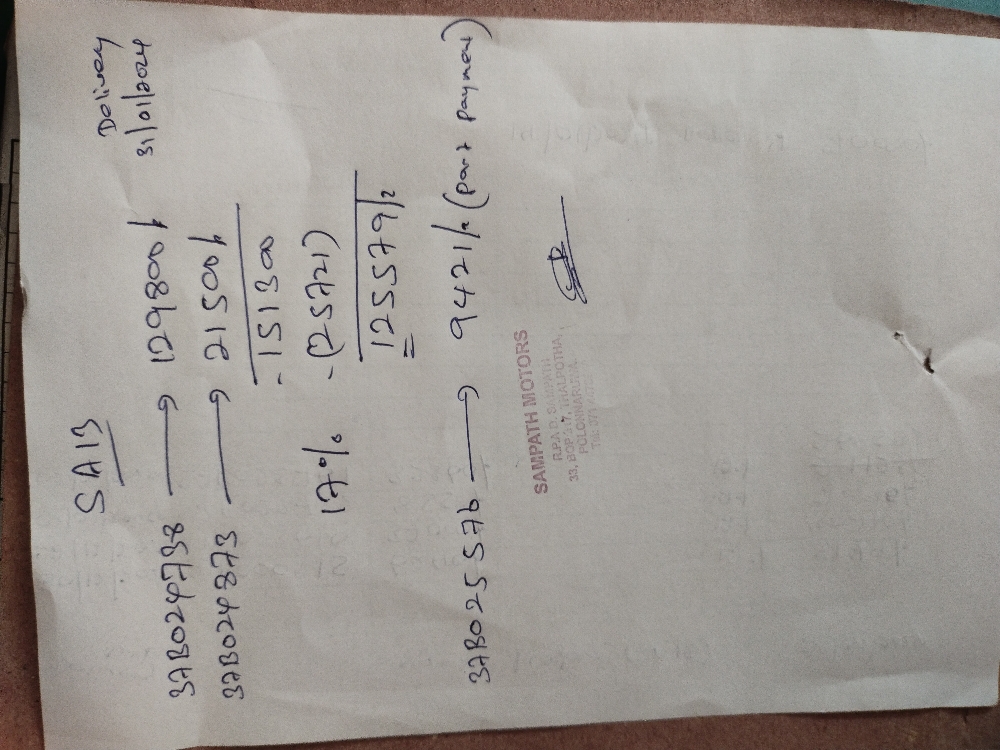 SA13
Delivery
31/01/2024
37B024738 → 129800/-
37B024873 → 21500/-
151300
17% - (25721)
125579/-
37B025576 → 9421/- (part payment)
SAMPATH MOTORS
R.P.A.D. SAMPATH
33, BOP 317, THALPOTHA,
POLONNARUWA.